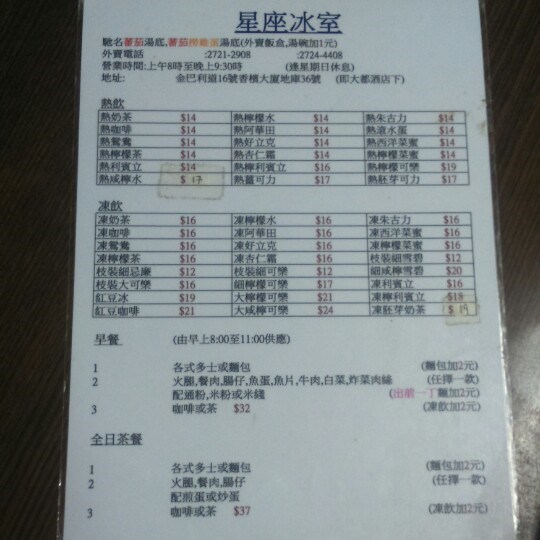 星座冰室
馳名蕃茄湯底,蕃茄煙雞蛋湯底(外賣飯盒,湯碗加1元)
外賣電話 :2721-2908 :2724-4408
營業時間:上午8時至晚上9:30時 (逢星期日休息)
地址: 金巴利道16號香檳大廈地庫36號 (即大都酒店下)
熱飲
熱奶茶 $14 熱檸檬水 $14 熱朱古力 $14
熱咖啡 $14 熱阿華田 $14 熱滾水蛋 $14
熱鴛鴦 $14 熱好立克 $14 熱西洋菜蜜 $14
熱檸檬茶 $14 熱杏仁霜 $14 熱檸檬菜蜜 $14
熱利賓立 $14 熱檸利賓立 $16 熱檸檬可樂 $19
熱咸檸水 $ 17 熱薑可力 $17 熱胚芽可力 $17
凍飲
凍奶茶 $16 凍檸檬水 $16 凍朱古力 $16
凍咖啡 $16 凍阿華田 $16 凍西洋菜蜜 $16
凍鴛鴦 $16 凍好立克 $16 凍檸檬菜蜜 $16
凍檸檬茶 $16 凍杏仁霜 $16 枝裝細雪碧 $12
枝裝細忌廉 $12 枝裝細可樂 $12 細咸檸雪碧 $20
枝裝大可樂 $16 細檸檬可樂 $17 凍利賓立 $16
紅豆冰 $19 大檸檬可樂 $21 凍檸利賓立 $18
紅豆咖啡 $21 大咸檸可樂 $24 凍胚芽奶茶 $ 19
早餐 (由早上8:00至11:00供應)
1 各式多士或麵包 (麵包加2元)
2 火腿,餐肉,腸仔,魚蛋,魚片,牛肉,白菜,炸菜肉絲 (任擇一款)
配通粉,米粉或米綫 (出前一丁麵加2元)
3 咖啡或茶 $32 (凍飲加2元)
全日茶餐
1 各式多士或麵包 (麵包加2元)
2 火腿,餐肉,腸仔 (任擇一款)
配煎蛋或炒蛋
3 咖啡或茶 $37 (凍飲加2元)